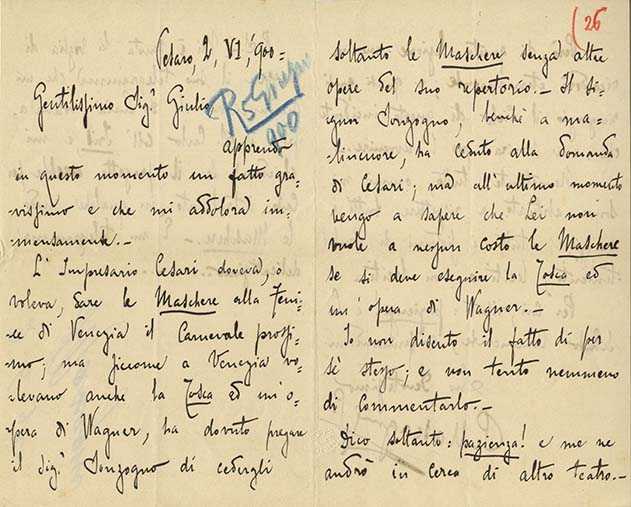 Pesaro, 2, VI, '900=
Gentilissimo Sig.r Giulio
R 5 Giugno
900
apprendo
in questo momento un fatto gra-
vissimo e che mi addolora im-
mensamente.—
L'Impresario Cesari doveva, o
voleva, dare le Maschere alla Feni-
ce di Venezia il Carnevale prossi-
mo; ma siccome a Venezia vo-
levano anche la Tosca ed un'o-
pera di Wagner, ha dovuto pregare
il Sig.r Sonzogno di cedergli
(26
soltanto le Maschere senza altre
opere del suo repertorio.— Il Si-
gnor Sonzogno, benchè a ma-
lincuore, ha ceduto alla domanda
di Cesari; ma all'ultimo momento
vengo a sapere che Lei non
vuole a nessun costo le Maschere
se si deve eseguire la Tosca ed
un'opera di Wagner.—
Io non discuto il fatto di per
sè stesso; e non tento nemmeno
di commentarlo.—
Dico soltanto: pazienza! e me ne
andrò in cerca di altro teatro.—